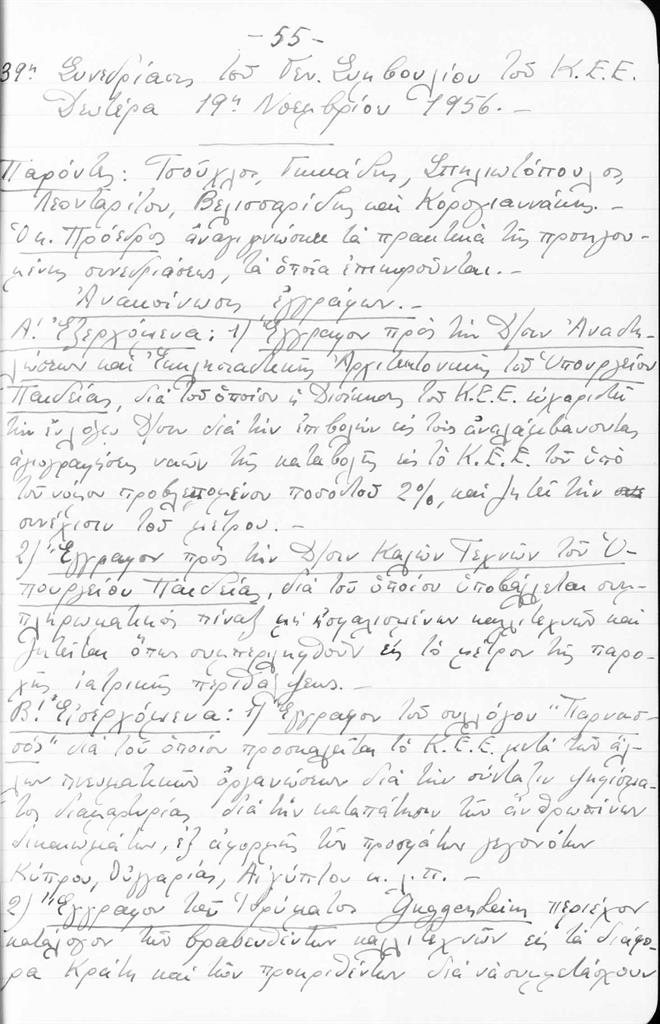 - 55 -
39η Συνεδρίασις τοῦ Γεν. Συμβουλίου τοῦ Κ.Ε.Ε.
Δευτέρα 19η Νοεμβρίου 1956. -
Παρόντες: Τσοῦχλος, Γιωτάδης, Σπηλιωτόπουλος,
Λεονταρίτου, Βελισσαρίδης καὶ Κορογιαννάκης. -
Ὁ κ. Πρόεδρος ἀναγιγνώσκει τὰ πρακτικὰ τῆς προηγου-
μένης συνεδριάσεως, τὰ ὁποῖα ἐπικυροῦνται. -
Ἀνακοίνωσις ἐγγράφων. -
Α! Ἐξερχόμενα: 1) Ἔγγραφον πρὸς τὴν Δ/σιν Ἀναστη-
λώσεων καὶ Ἐκκλησιαστικῆς Ἀρχιτεκτονικῆς τοῦ Ὑπουργείου
Παιδείας, διὰ τοῦ ὁποίου ἡ Διοίκησις τοῦ Κ.Ε.Ε. εὐχαριστεῖ
τὴν ἐν λόγῳ Δ/σιν διὰ τὴν ἐπιβολὴν εἰς τοὺς ἀναλαμβάνοντας
ἁγιογραφήσεις ναῶν τῆς καταβολῆς εἰς τὸ Κ.Ε.Ε. τοῦ ὑπὸ
τοῦ νόμου προβλεπομένου ποσοστοῦ 2%, καὶ ζητεῖ τὴν
συνέχισιν τοῦ μέτρου. -
2) Ἔγγραφον πρὸς τὴν Δ/σιν Καλῶν Τεχνῶν τοῦ Ὑ-
πουργείου Παιδείας, διὰ τοῦ ὁποίου ὑποβάλλεται συμ-
πληρωματικὸς πίναξ μὴ ἠσφαλισμένων καλλιτεχνῶν καὶ
ζητεῖται ὅπως συμπεριληφθοῦν εἰς τὸ μέτρον τῆς παρο-
χῆς ἰατρικῆς περιθάλψεως. -
Β! Εἰσερχόμενα: 1) Ἔγγραφον τοῦ συλλόγου "Παρνασ-
σός" διὰ τοῦ ὁποίου προσκαλεῖται τὸ Κ.Ε.Ε. μετὰ τῶν ἄλ-
λων πνευματικῶν ὀργανώσεων διὰ τὴν σύνταξιν ψηφίσμα-
τος διαμαρτυρίας διὰ τὴν καταπάτησιν τῶν ἀνθρωπίνων
δικαιωμάτων, ἐξ ἀφορμῆς τῶν προσφάτων γεγονότων
Κύπρου, Οὑγγαρίας, Αἰγύπτου κ.λ.π. -
2) Ἔγγραφον τοῦ Ἱδρύματος Guggenheim περιέχον
κατάλογον τῶν βραβευθέντων καλλιτεχνῶν εἰς τὰ διάφο-
ρα Κράτη καὶ τῶν προκριθέντων διὰ νὰ συμμετάσχουν